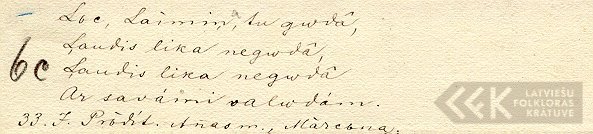 Loc, Laimiņ, tu gwdâ,
Ļaudis lika negwdâ,
6c Ļaudis lika negwdâ
Ar savàmi valwdàm.
33. J. Prôdit. Añas m., Màrcèna.
LATVIEŠU
FOLKLORAS
KRĀTUVE